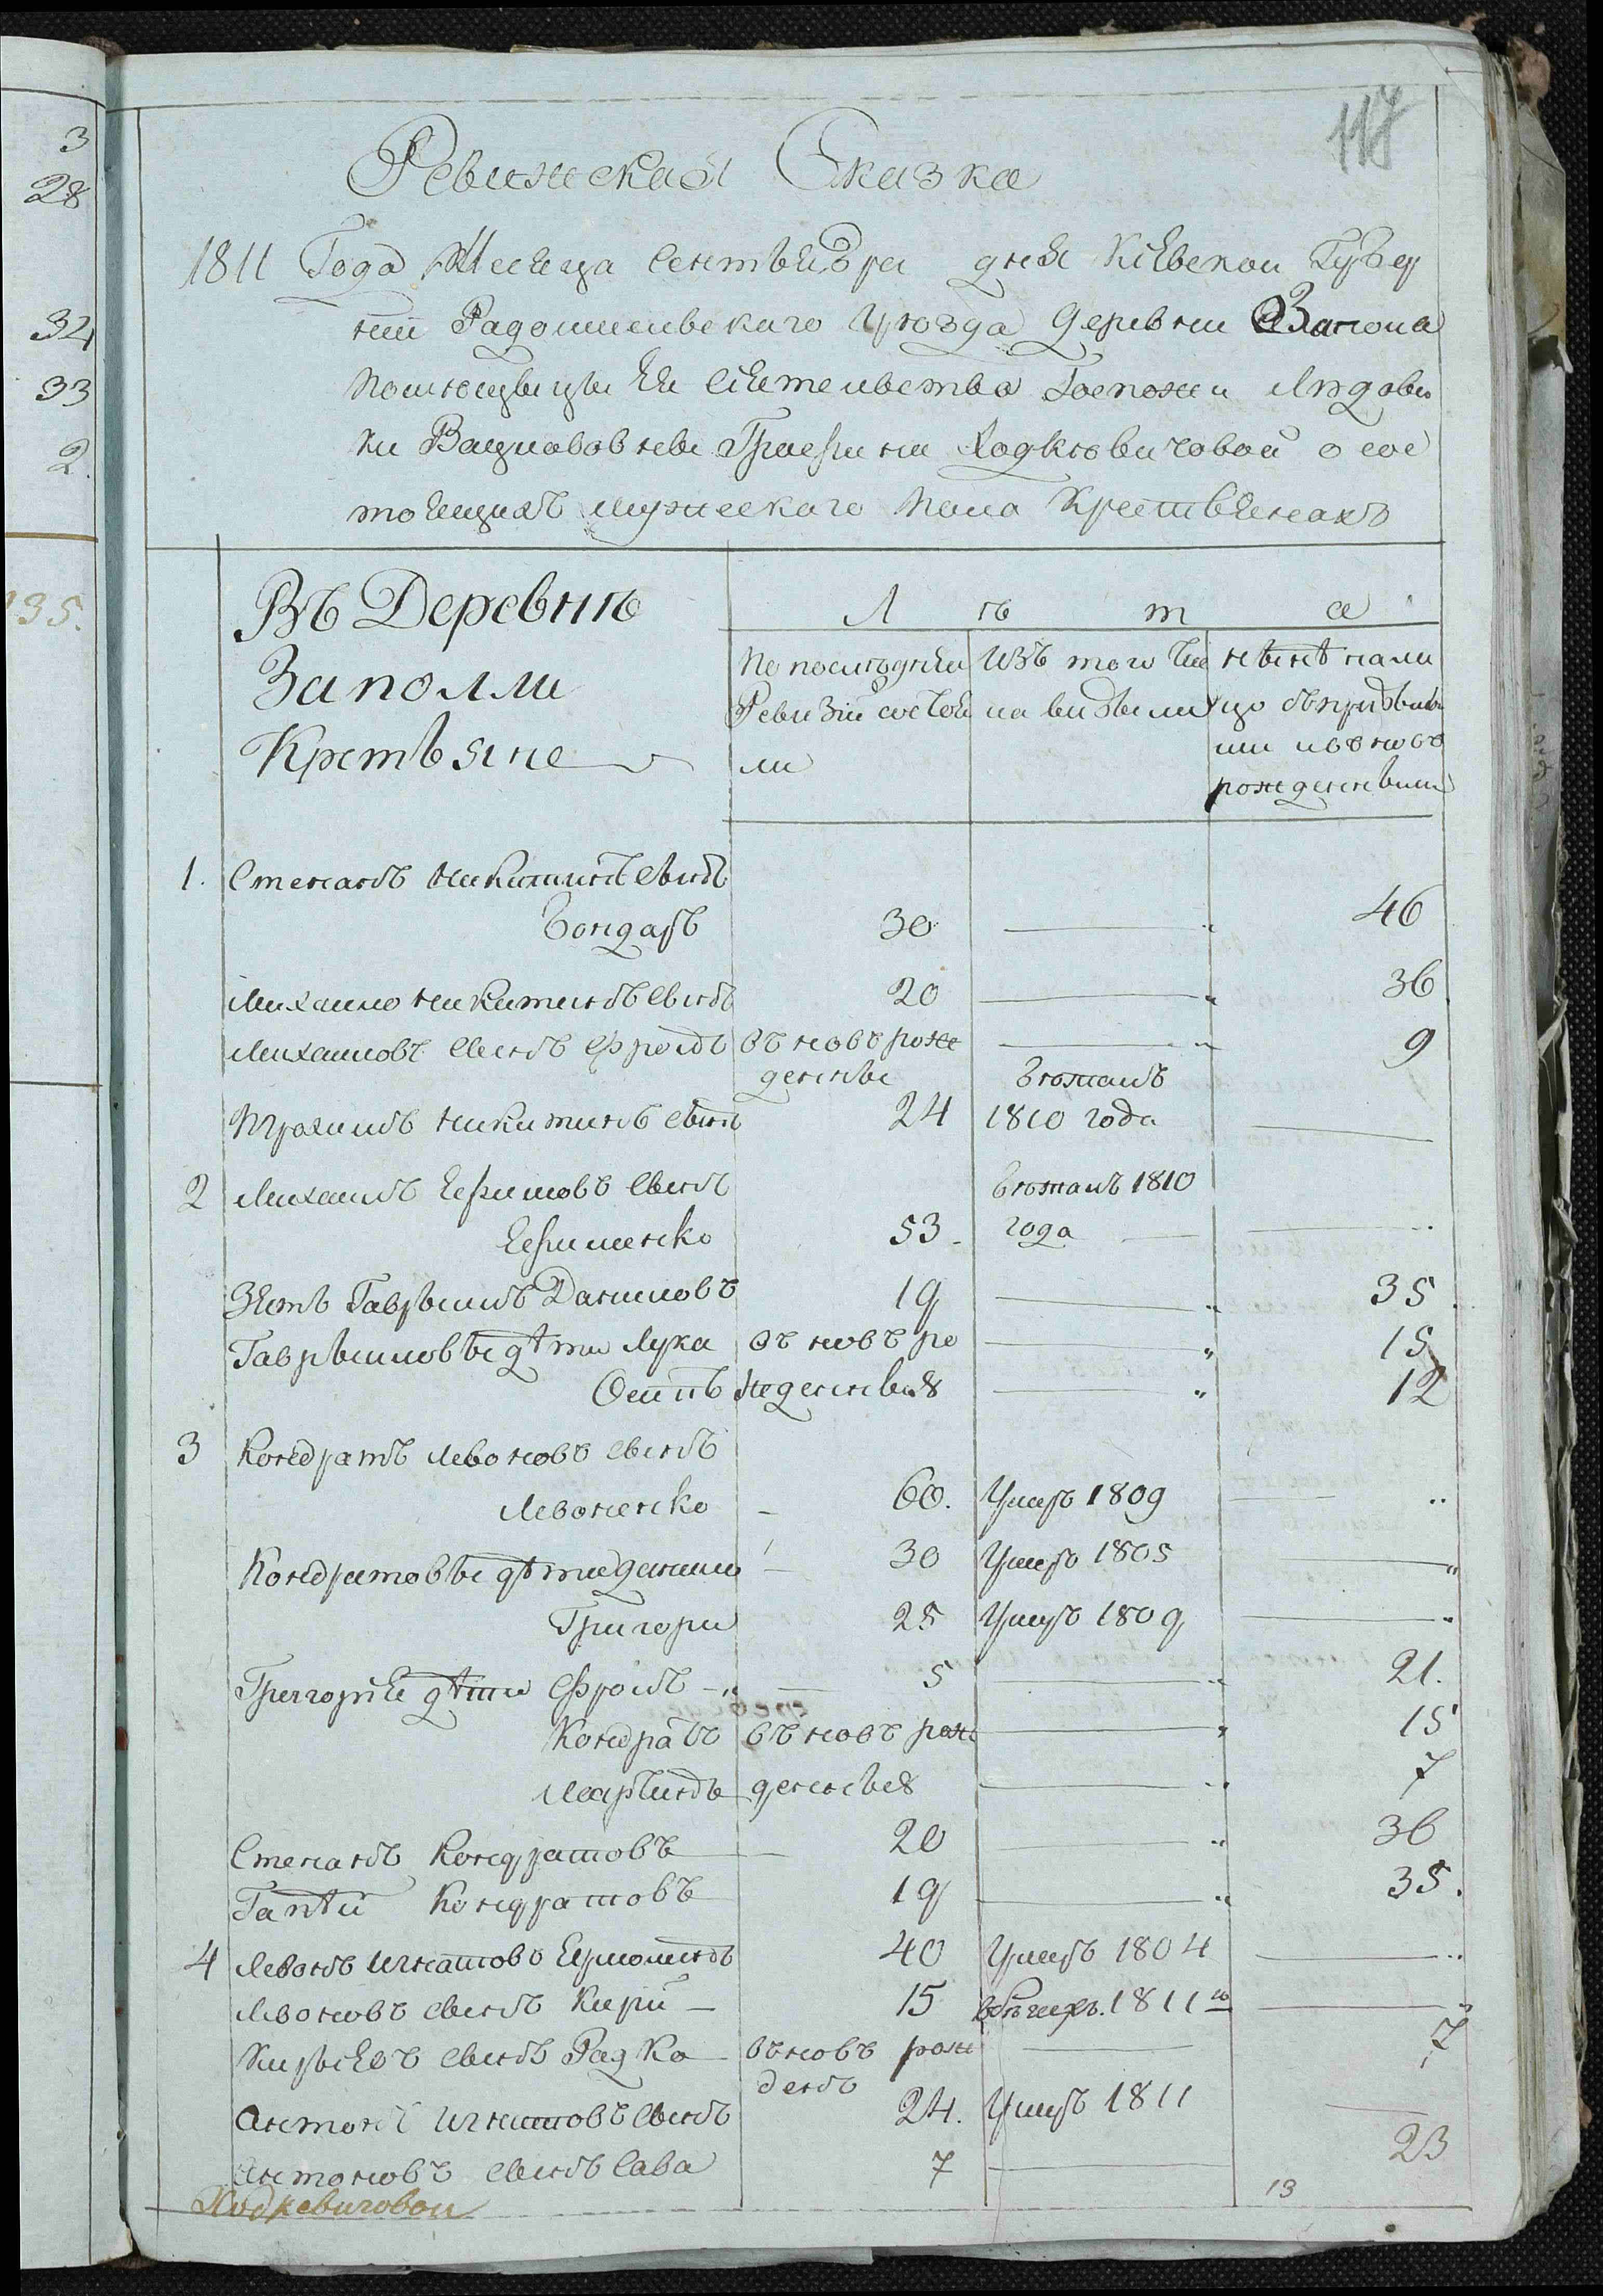 3
28
32
33
2.
135.
117
Ревижская Сказка
1811 Года Месяца Сентъября дня Кіевскои Губер
ніи Радомисльскаго Уѣзда Деревни Запола
помѣщицы Ея Сіятельства Госпожи Людови
ки Вацлововны Графини Ходкѣвичовой о сос
тоящихъ мужескаго пола Крестьянахъ
Въ Деревнѣ
Заполли
Крестьяне
Л ѣ т а
По послѣдней
Ревизіи состоя
ли
Изъ того чис
ла выбыли
нынѣ нали
цо съ прибывы
ми и вновь
рожденными
1. Степанъ Никитинъ сынъ
Бондарь 30 46
Михаило Никитинъ сынъ 20 36
Михаиловъ сынъ Фролъ въновь рож 9
денны
Прохимъ Никитинъ сынъ 24 бѣжалъ
1810 года
2 Михаилъ Ефимовъ сынъ бѣжалъ 1810
Ефименко 53 года
Зять Гаврыилъ Даниловъ 19 35
Гаврыиловы дѣти Лука въ новь ро 15
Осипъ жденныя 12
3 Кондратъ Левоновъ сынъ
Левоненко 60. Умеръ 1809
Кондратовы дѣти Данило 30 Умеръ 1805
Григори 25 Умеръ 1809
Григоріе дѣти Фролъ 5 21.
Кондратъ въновь рож 15
Мартинъ денныя 7
Степанъ Кондратовъ 20 36
Гапѣй Кондратовъ 19 35.
4 Левонъ Игнатовъ 40 Умеръ 1804
Лвоновъ сынъ Кирій 15 1811го
Кирыевъ сынъ Радко въновь рож 7
денъ
Антонъ Игнатовъ сынъ 24. Умеръ 1811
Антоновъ сынъ Сава 7 23
13
Ходкевичовои